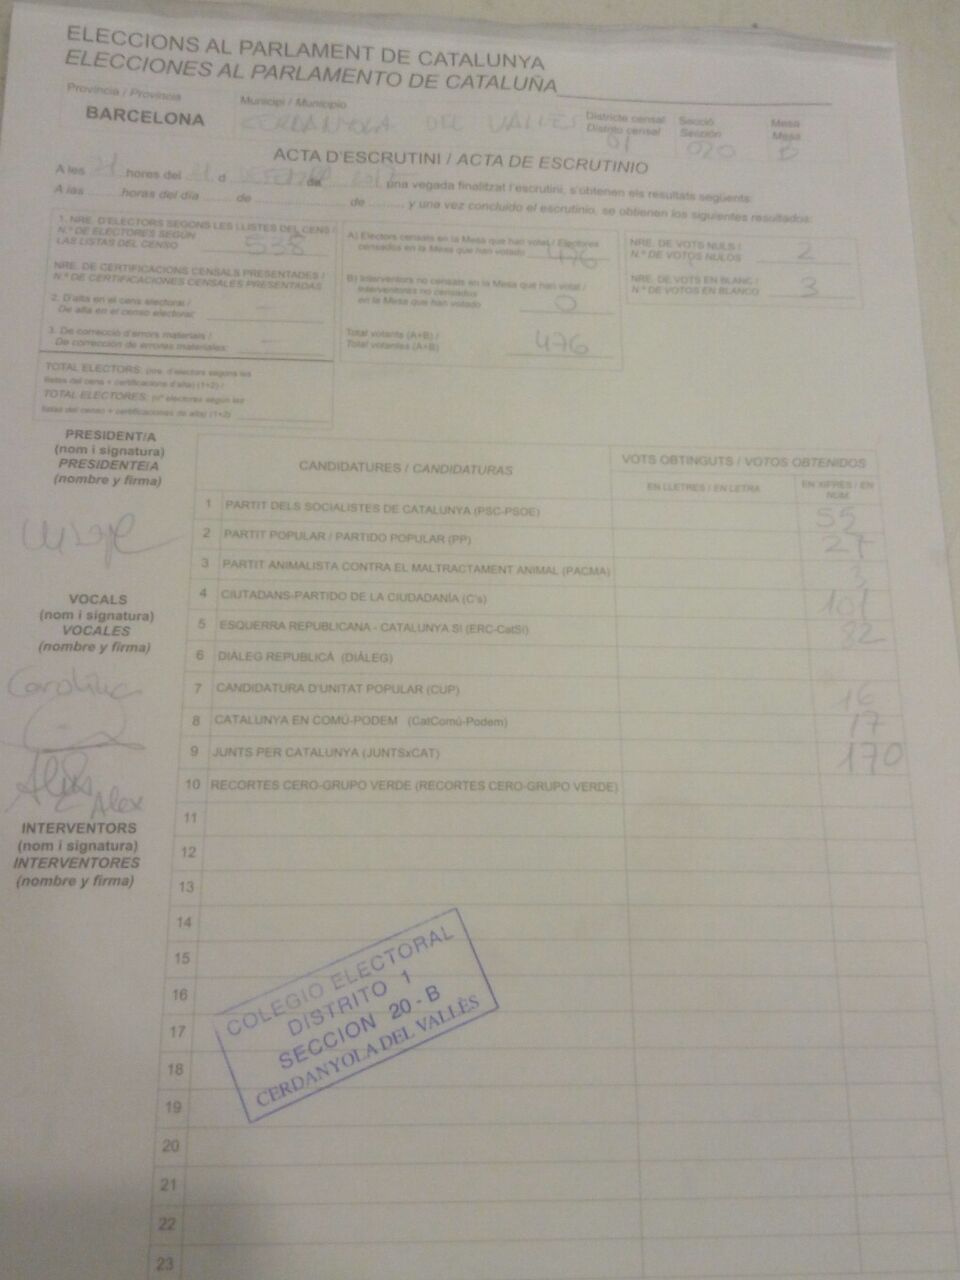 ELECCIONS AL PARLAMENT DE CATALUNYA
ELECCIONES AL PARLAMENTO DE CATALUÑA
Província / Provincia
BARCELONA
Municipi / Municipio
CERDANYOLA DEL VALLES
Districte censal
Distrito censal
01
Secció
Sección
020
Mesa
Mesa
B
ACTA D'ESCRUTINI / ACTA DE ESCRUTINIO
A les 21 hores del 21 d de 2017 una vegada finalitzat l'escrutini, s'obtenen els resultats següents:
A las horas del día de de y una vez concluido el escrutinio, se obtienen los siguientes resultados:
1. NRE. D'ELECTORS SEGONS LES LLISTES DEL CENS /
N.º DE ELECTORES SEGÚN
LAS LISTAS DEL CENSO
538
NRE. DE CERTIFICACIONS CENSALS PRESENTADES /
N.º DE CERTIFICACIONES CENSALES PRESENTADAS
2. D'alta en el cens electoral /
De alta en el censo electoral:
3. De correcció d'errors materials /
De corrección de errores materiales:
TOTAL ELECTORS: (nre. d'electors segons les
llistes del cens + certificacions d'alta) (1+2) /
TOTAL ELECTORES: (nº electores según las
listas del censo + certificaciones de alta) (1+2)
A) Electors censats en la Mesa que han votat / Electores
censados en la Mesa que han votado
476
B) Interventors no censats en la Mesa que han votat /
Interventores no censados
en la Mesa que han votado
0
Total votants (A+B) /
Total votantes (A+B)
476
NRE. DE VOTS NULS /
N.º DE VOTOS NULOS
2
NRE. DE VOTS EN BLANC /
N.º DE VOTOS EN BLANCO
3
PRESIDENT/A
(nom i signatura)
PRESIDENTE/A
(nombre y firma)
VOCALS
(nom i signatura)
VOCALES
(nombre y firma)
Carolina
Alex
Alex
INTERVENTORS
(nom i signatura)
INTERVENTORES
(nombre y firma)
CANDIDATURES / CANDIDATURAS
VOTS OBTINGUTS / VOTOS OBTENIDOS
EN LLETRES / EN LETRA
EN XIFRES / EN
NÚM.
1 PARTIT DELS SOCIALISTES DE CATALUNYA (PSC-PSOE) 55
2 PARTIT POPULAR / PARTIDO POPULAR (PP) 27
3 PARTIT ANIMALISTA CONTRA EL MALTRACTAMENT ANIMAL (PACMA) 3
4 CIUTADANS-PARTIDO DE LA CIUDADANÍA (C's) 101
5 ESQUERRA REPUBLICANA - CATALUNYA SÍ (ERC-CatSí) 82
6 DIÀLEG REPUBLICÀ (DIÀLEG)
7 CANDIDATURA D'UNITAT POPULAR (CUP) 16
8 CATALUNYA EN COMÚ-PODEM (CatComú-Podem) 17
9 JUNTS PER CATALUNYA (JUNTSxCAT) 170
10 RECORTES CERO-GRUPO VERDE (RECORTES CERO-GRUPO VERDE)
11
12
13
14
15
16
17
18
19
20
21
22
23
COLEGIO ELECTORAL
DISTRITO 1
SECCION 20 - B
CERDANYOLA DEL VALLÈS